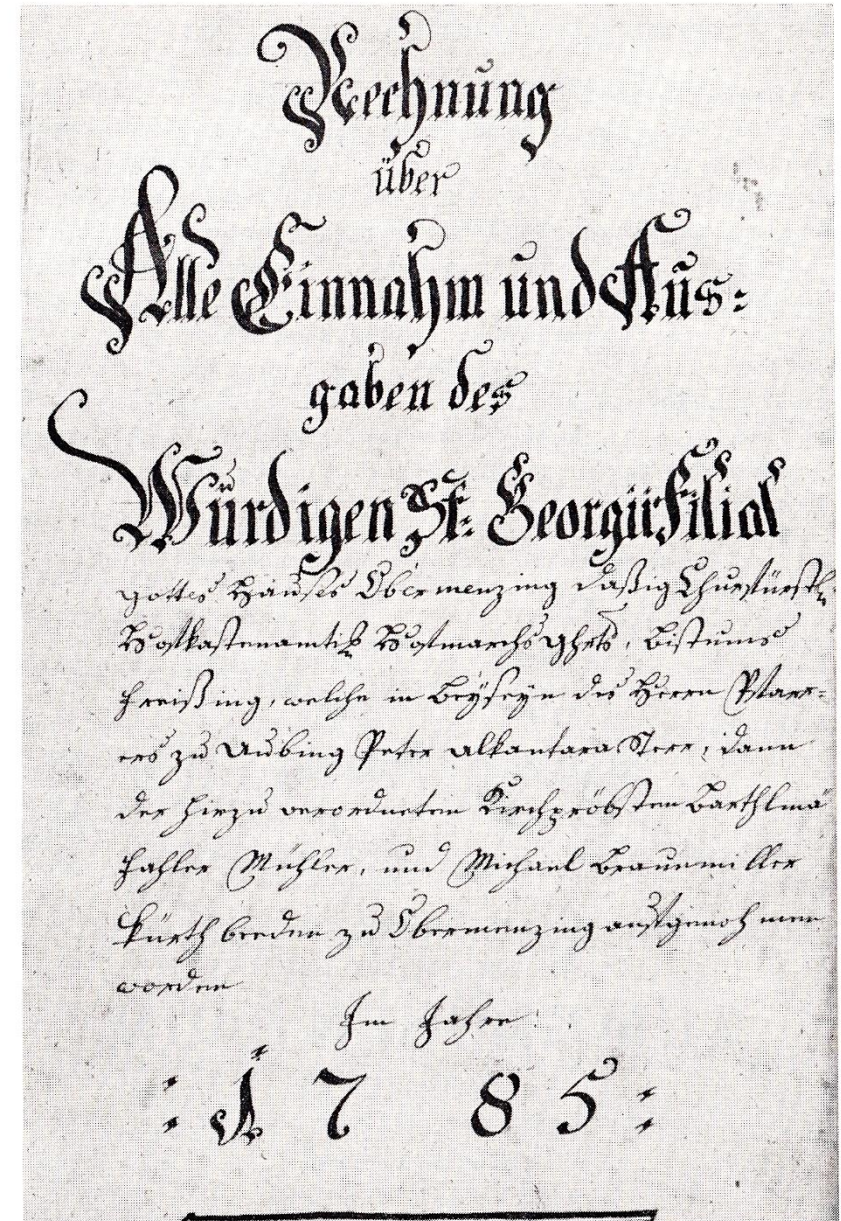 Rechnung
über
Alle Einnahm und Aus=
gaben des
Würdigen St: Georgii Filial
gottes Hauses Obermenzing daßig Churfürstl:
Hofkastenamtis: Hofmarchs ghrts, Bistums
Freißing, welche in Beyseyn des Herrn Pfarr=
ers zu Aubing Peter Alkantara Sterr, dann
der hiezu verordneten Kirchpröbsten Barthlmä
Mühler, und Michael Braunmiller
beeden zu Obermenzing aufgenohmen
worden
Im Jahre
: 1 7 8 5 :